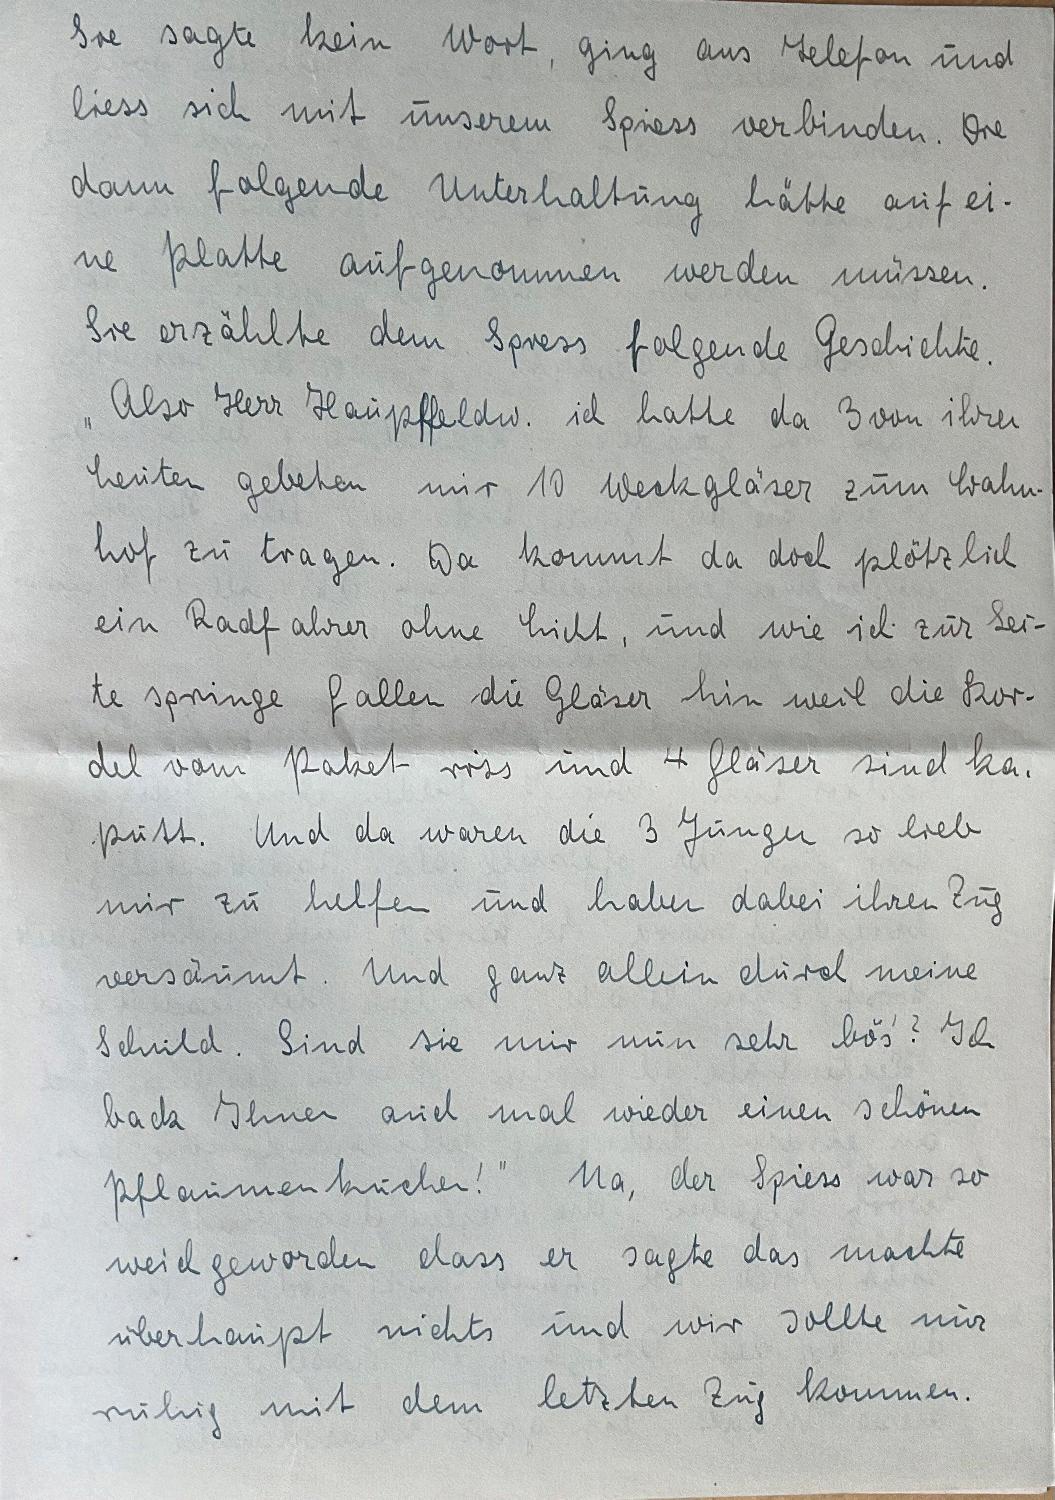 Sie sagte kein Wort, ging ans Telefon und
liess sich mit unserem Spiess verbinden. Die
dann folgende Unterhaltung hätte auf ei-
ne Platte aufgenommen werden müssen.
Sie erzählte dem Spiess folgende Geschichte.
„Also Herr Haupffeldw. ich hatte da 3 von ihren
Leuten gebeten mir 10 Weckgläser zum Bahn-
hof zu tragen. Da kommt da doch plötzlich
ein Radfahrer ohne Licht, und wie ich zur Sei-
te springe fallen die Gläser hin weil die Kor-
del vom Paket riss und 4 Gläser sind ka-
putt. Und da waren die 3 Jungen so lieb
mir zu helfen und haben dabei ihren Zug
versäumt. Und ganz allein durch meine
Schuld. Sind sie mir nun sehr bös'? Ich
back Ihnen auch mal wieder einen schönen
Pflaumenkuchen!" Na, der Spiess war so
weich geworden dass er sagte das machte
überhaupt nichts und wir sollte nur
ruhig mit dem letzten Zug kommen.